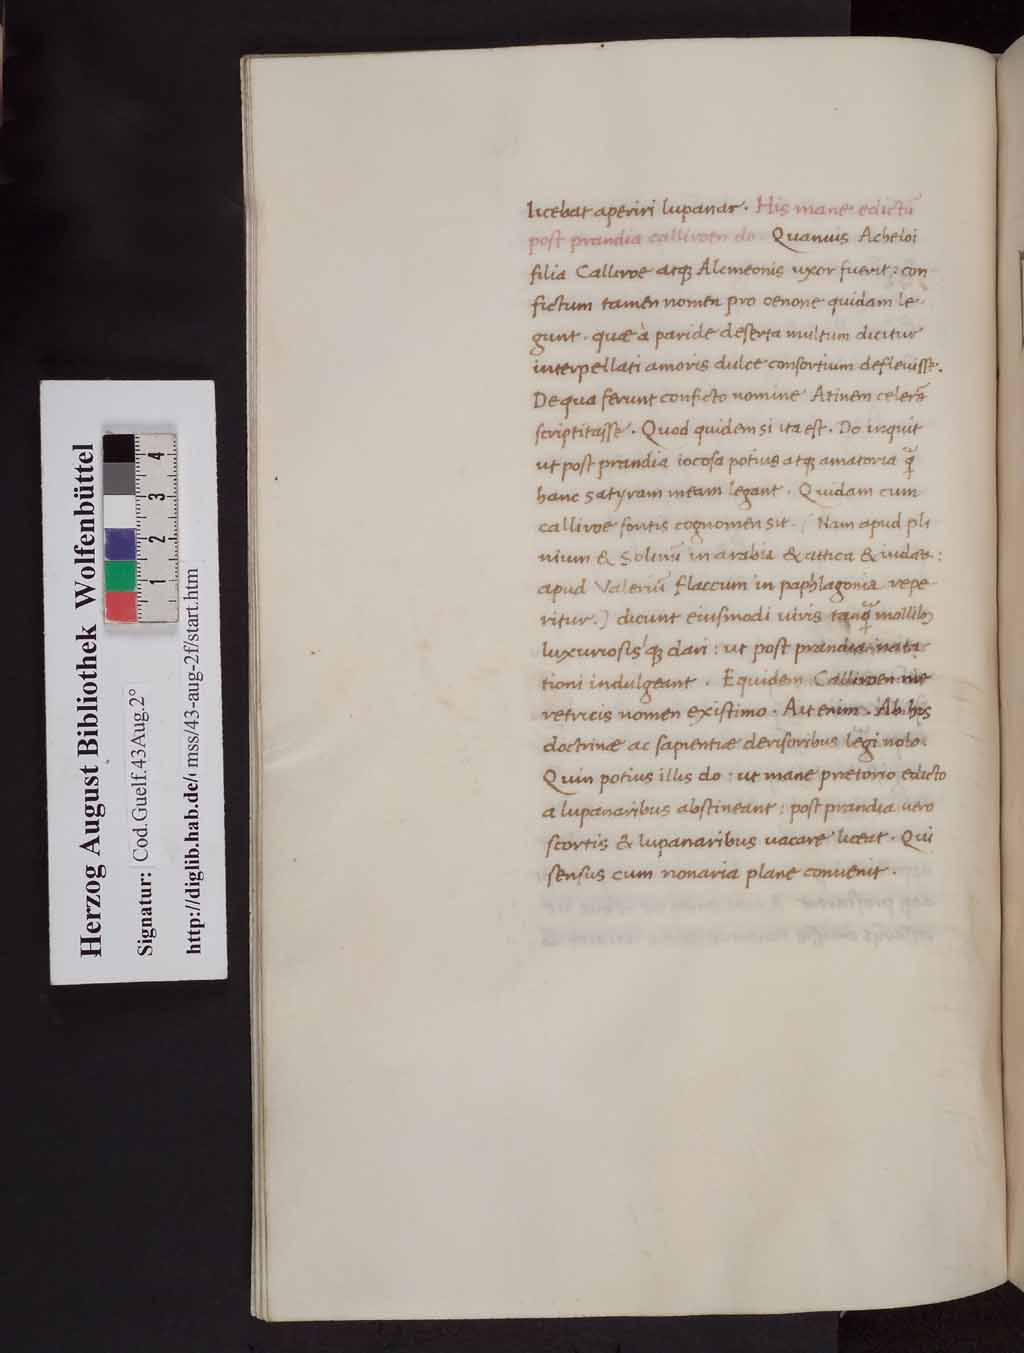 Herzog August Bibliothek Wolfenbüttel
Signatur: Cod.Guelf.43Aug.2°
http://diglib.hab.de/mss/43-aug-2f/start.htm
1 2 3 4
licebat aperiri lupanar. His mane edictū
post prandia calliroen do. Quamuis Acheloi
filia Calliroe atq; Alcmeonis uxor fuerit: con
fictum tamen nomen pro oenone quidam le
gunt. quæ à paride deserta multum dicitur
interpellati amoris dulce consortium defleuisse.
De qua ferunt conficto nomine Atinem celerē
scriptitasse. Quod quidem si ita est. Do inquit
ut post prandia iocosa potius atq; amatoria q̄
hanc satyram meam legant. Quidam cum
calliroe fontis cognomen sit. (Nam apud pli
nium & Solinū in arabia & attica & iudæa:
apud Valeriū flaccum in paphlagonia repe
ritur.) dicunt eiusmodi uiris tanq̄ mollib;
luxuriosisq; dari: ut post prandia nata
tioni indulgeant. Equidem Calliroen me
retricis nomen existimo. Ait enim. Ab his
doctrinæ ac sapientiæ derisoribus legi nolo.
Quin potius illis do: ut mane prætorio edicto
a lupanaribus abstineant: post prandia uero
scortis & lupanaribus uacare liceat. Qui
sensus cum nonaria plane conuenit.